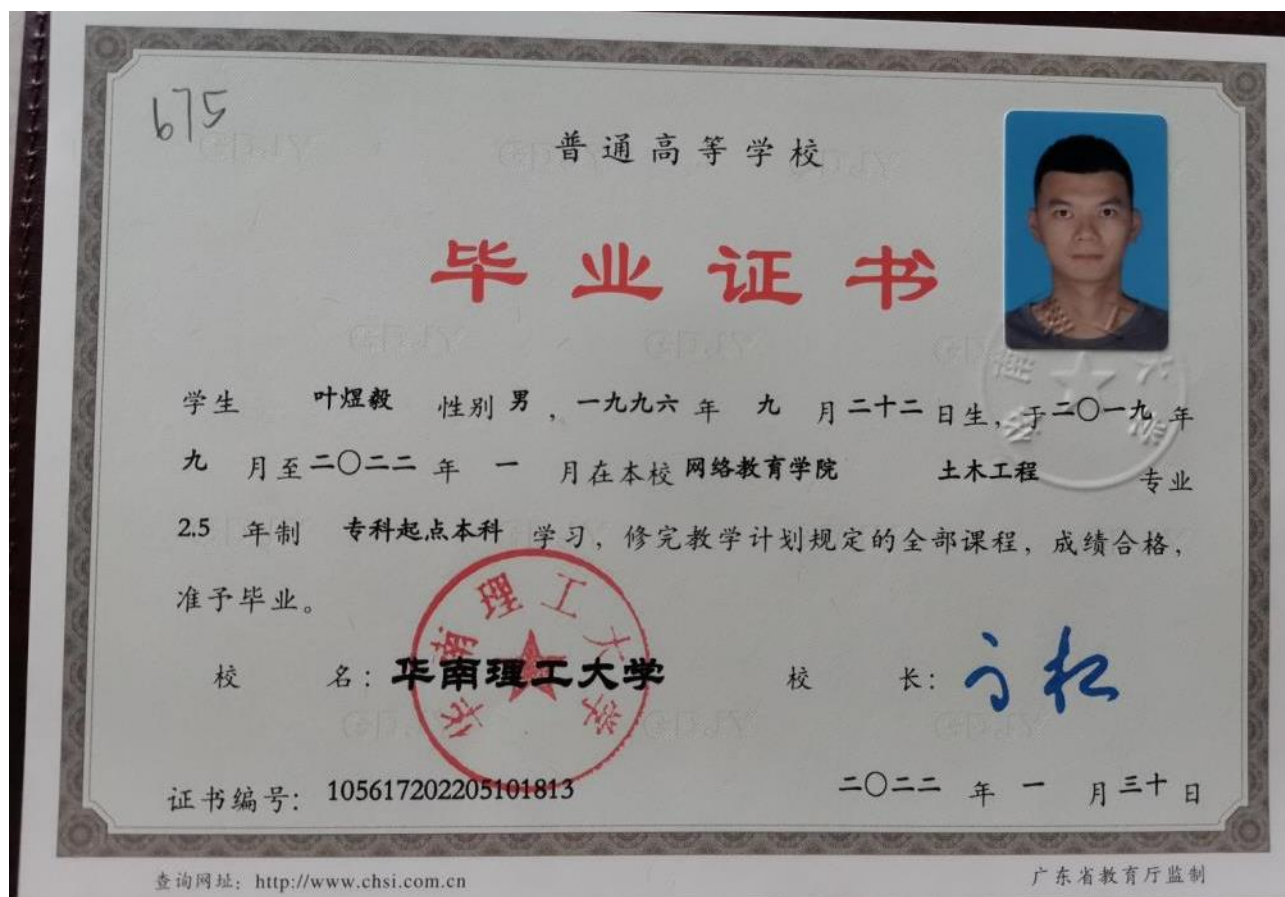 675
普通高等学校
毕业证书
学生 叶煜毅 性别 男，一九九六 年 九 月 二十二 日生，于 二〇一九 年
九 月至 二〇二二 年 一 月在本校 网络教育学院 土木工程 专业
2.5 年制 专科起点本科 学习，修完教学计划规定的全部课程，成绩合格，
准予毕业。
华南理工大学
校 名：华南理工大学 校 长：
证书编号：105617202205101813 二〇二二 年 一 月 三十 日
查询网址：http://www.chsi.com.cn 广东省教育厅监制